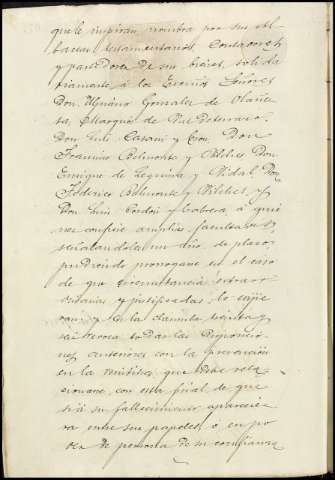 que le inspiran nombra por sus al-
baceas testamentarios, Contadores
y partidores de sus bienes, solida-
riamente á los Excmos Señores
Don Mariano Gonzalez de Olañe-
ta, Marques de Valdeterrazo,
Don Luis Casani y Cron, Don
Francisco Belmonte y Vilches, Don
Enrique de Leguina y Vidal, Don
Federico Belmonte y Vilches, y
Don Luis Cordon y Cabrera, á quie-
nes confiere amplias facultades
señalandoles un año de plazo,
pudiendo prorrogarse en el caso
de que circunstancias extraor-
dinarias y justificadas lo exijie-
ran; y en la clausula
se revoca todas las disposicio-
nes anteriores con la prevencion
en la que debe rela-
cionarse con esta final de que
si á su fallecimiento aparecie-
ra entre sus papeles ó en po-
der de persona de su confianza